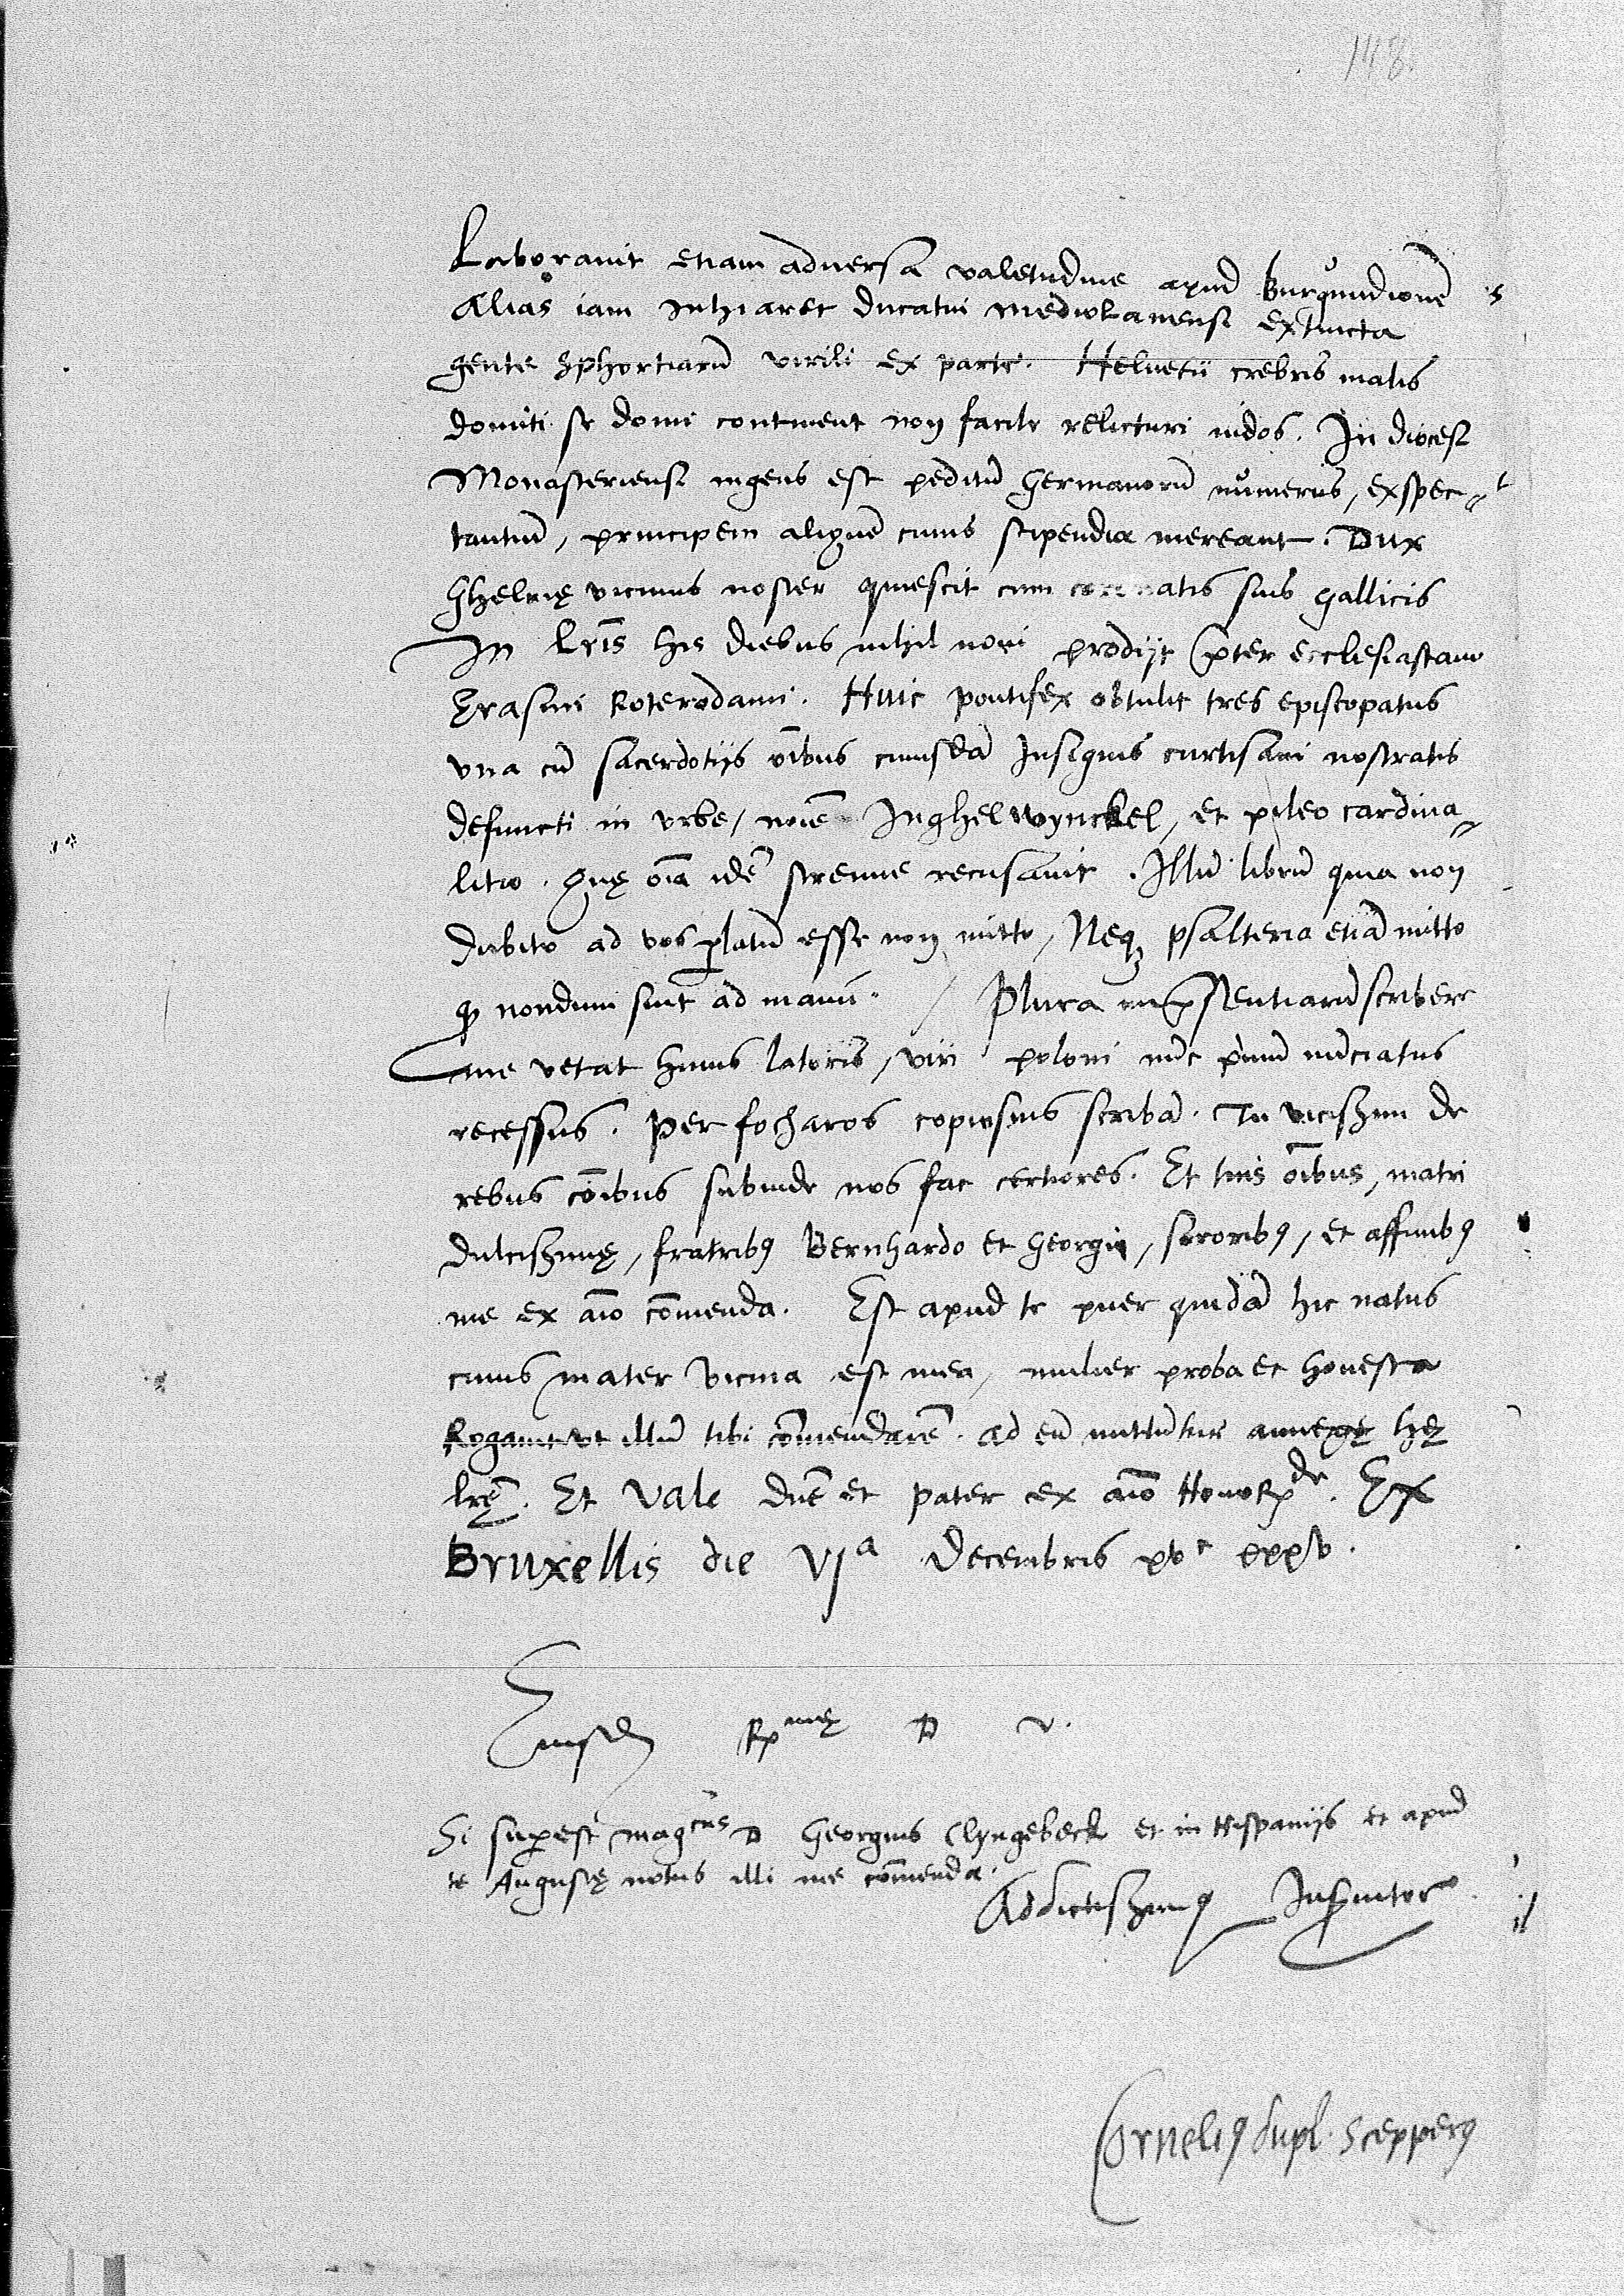 148.
Laboravit etiam adversa valetudine apud Burgundionē s
Alias iam inhiaret ducatui Mediolanensi extincta
gente Sphortiarū virili ex parte. Helvetii crebris malis
domiti se domi continent non facile relicturi nidos. In diocesi
Monasteriensi ingens est peditū Germanorū numerus, exspec-
tantiū, principem aliquē cuius stipendia mereant. Dux
Ghelrię vicinus noster quiescit cum coronatis suis gallicis
In lrīs his diebus nihil novi prodijt p̄ter ecclesiasten
Erasmi Roterodami. Huic pontifex obtulit tres episcopatus
una cū sacerdotijs oībus cuiusdā insignis curtisani nostratis
defuncti in urbe, noīe Inghelwynckel, et pileo cardina-
litio. Quę oīa idē strenue recusavit. Illū librū quia non
dubito ad vos p̱latū esse non mitto, Neqȝ psalteria etiā mitto
qꝫ nondum sint ad manū. Plura inp̄sentiarū scribere
me vetat huius latoris, viri poloni nūc p̄mū nūciatus
recessus. Per focharos copiosius scribā. Tu vicissim de
rebus oībus subinde nos fac certiores. Et tuis oībus, matri
dulcissimę, fratribꝰ Bernhardo et Georgio, sororibꝰ, et affinibꝰ
me ex aīo cōmenda. Est apud te puer quidā hic natus
cuius mater vicina est mea, mulier proba et honesta
Rogavit ut illū tibi cōmendarē. ad eū mittūtur annexę hę
lrę. Et Vale dn̄e et pater ex aīo Honoꝶde. Ex
Bruxellis die VIa Decembris xvc xxxv.
Eiusdē Rmę D V.
Si sup̱est magcus D Georgius Clyngebeck et in Hispanijs et apud
te Augustę notus illi me cōmenda.
Addictissimꝰ Inservitor
Corneliꝰ dupl. Scepperꝰ